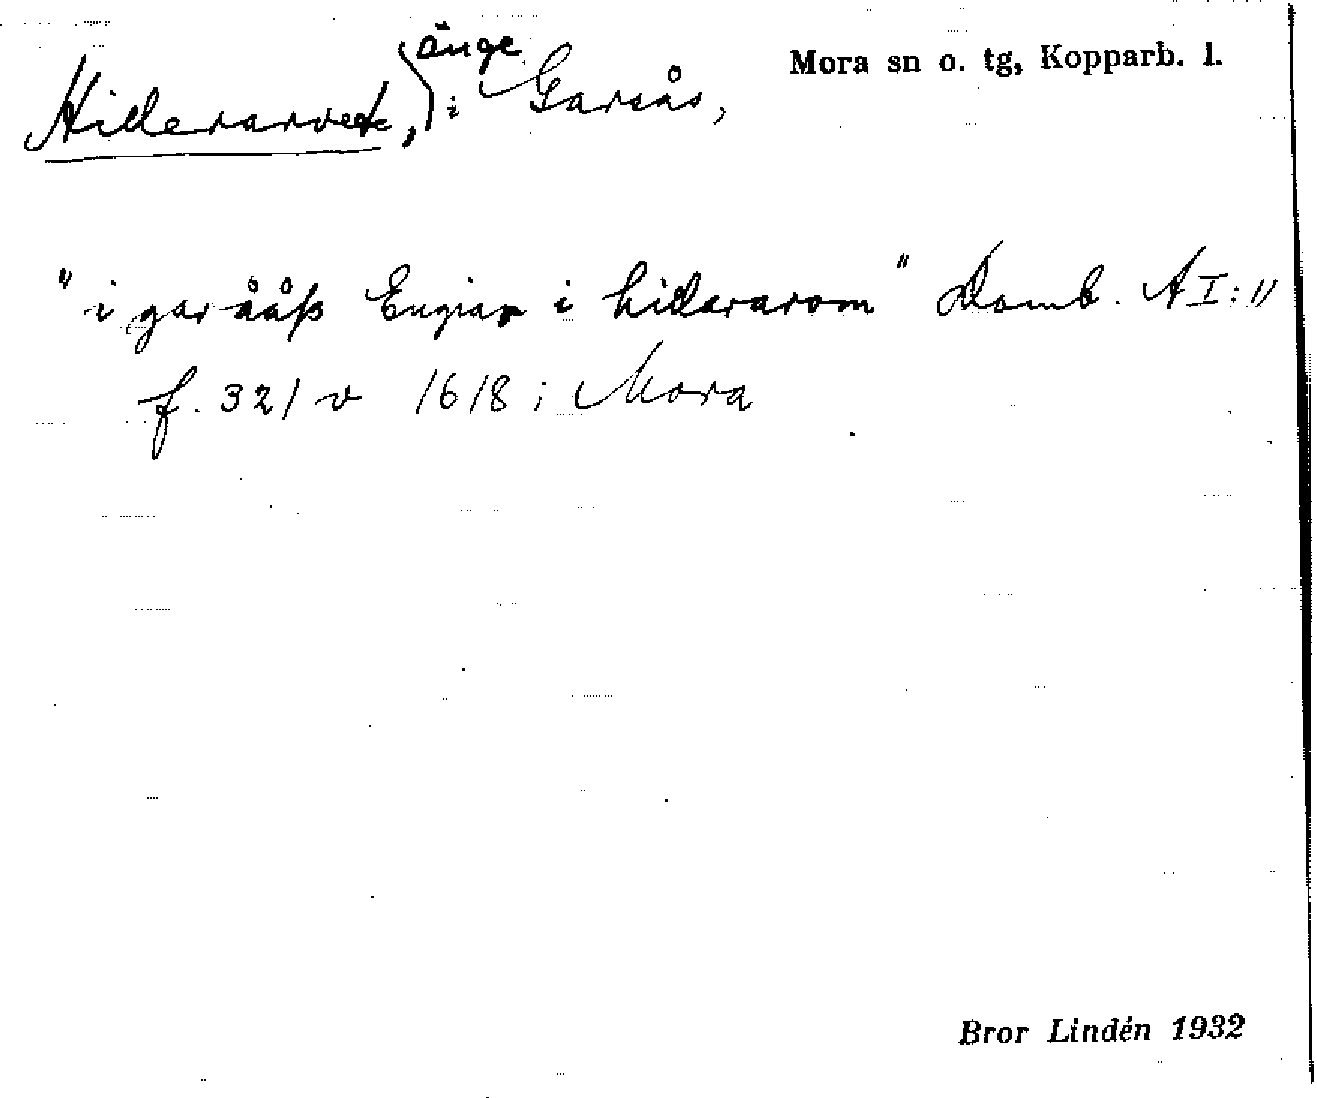 Hillerarvet, änge i Garsås,
Mora sn o. tg, Kopparb. l.
"i garååsz Engiar i hillerarom" Domb. AI:11
f. 321 v 1618; Mora
Bror Lindén 1932